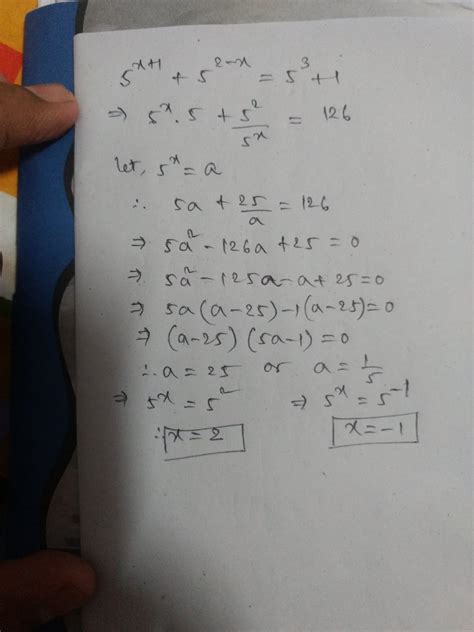 5^{x+1} + 5^{2-x} = 5^3 + 1
⇒ 5^x . 5 + 5^2/5^x = 126
let, 5^x = a
∴ 5a + 25/a = 126
⇒ 5a^2 - 126a + 25 = 0
⇒ 5a^2 - 125a - a + 25 = 0
⇒ 5a(a-25) - 1(a-25) = 0
⇒ (a-25) (5a-1) = 0
∴ a = 25 or a = 1/5
⇒ 5^x = 5^2 ⇒ 5^x = 5^{-1}
∴ x = 2 x = -1